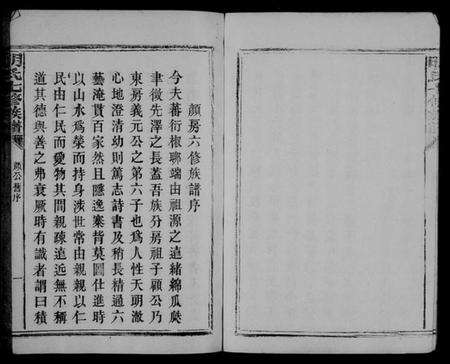 顏房六修族譜序
今夫蕃衍椒聊端由祖源之遠緒綿瓜瓞
聿徵先澤之長蓋吾族分房祖子顧公乃
東房義元公之第六子也為人性天明澈
心地澄清幼則篤志詩書及稍長精通六
藝淹貫百家然且隱逸寨背莫圖仕進時
以山水為榮而持身涉世常由親親以仁
民由仁民而愛物其間親疎遠近無不稱
道其德與善之弗衰厥時有識者謂曰積
七修族譜
公舊序